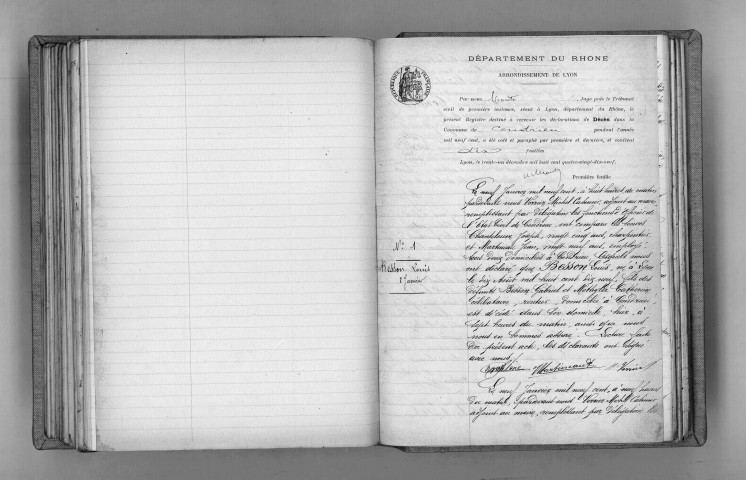 DÉPARTEMENT DU RHONE
ARRONDISSEMENT DE LYON
RÉPUBLIQUE FRANÇAISE
Par nous, Juge près le Tribunal
civil de première instance, séant à Lyon, département du Rhône, le
présent Registre destiné à recevoir les déclarations de Décès dans la
Commune de Condrieu pendant l'année
mil neuf cent, a été coté et paraphé par première et dernière, et contient
dix feuilles
Lyon, le trente-un décembre mil huit cent quatre-vingt-dix-neuf.
Première feuille
N° 1
Besson Louis
Le neuf Janvier mil neuf cent, à huit heures du matin
pardevant nous Michel Casimir, adjoint au maire
remplissant par délégation les fonctions d'officier de
l'Etat Civil de Condrieu, ont comparu
Joseph, vingt cinq ans, charpentier
et Martinaud Jean, vingt neuf ans, employé
tous deux domiciliés à Condrieu, lesquels
ont déclaré que Besson Louis, né à
le dix Août mil huit cent dix neuf, fils des
défunts Besson Gabriel et Catherine
célibataire, rentier, domicilié à Condrieu,
est décédé dans son domicile, hier, à
sept heures du matin, ainsi que nous
nous en sommes assuré. Lecture faite
du présent acte, les déclarants ont signé
avec nous.
Martinaud
Le neuf Janvier mil neuf cent, à neuf heures
du matin, pardevant nous Michel Casimir
adjoint au maire, remplissant par délégation les